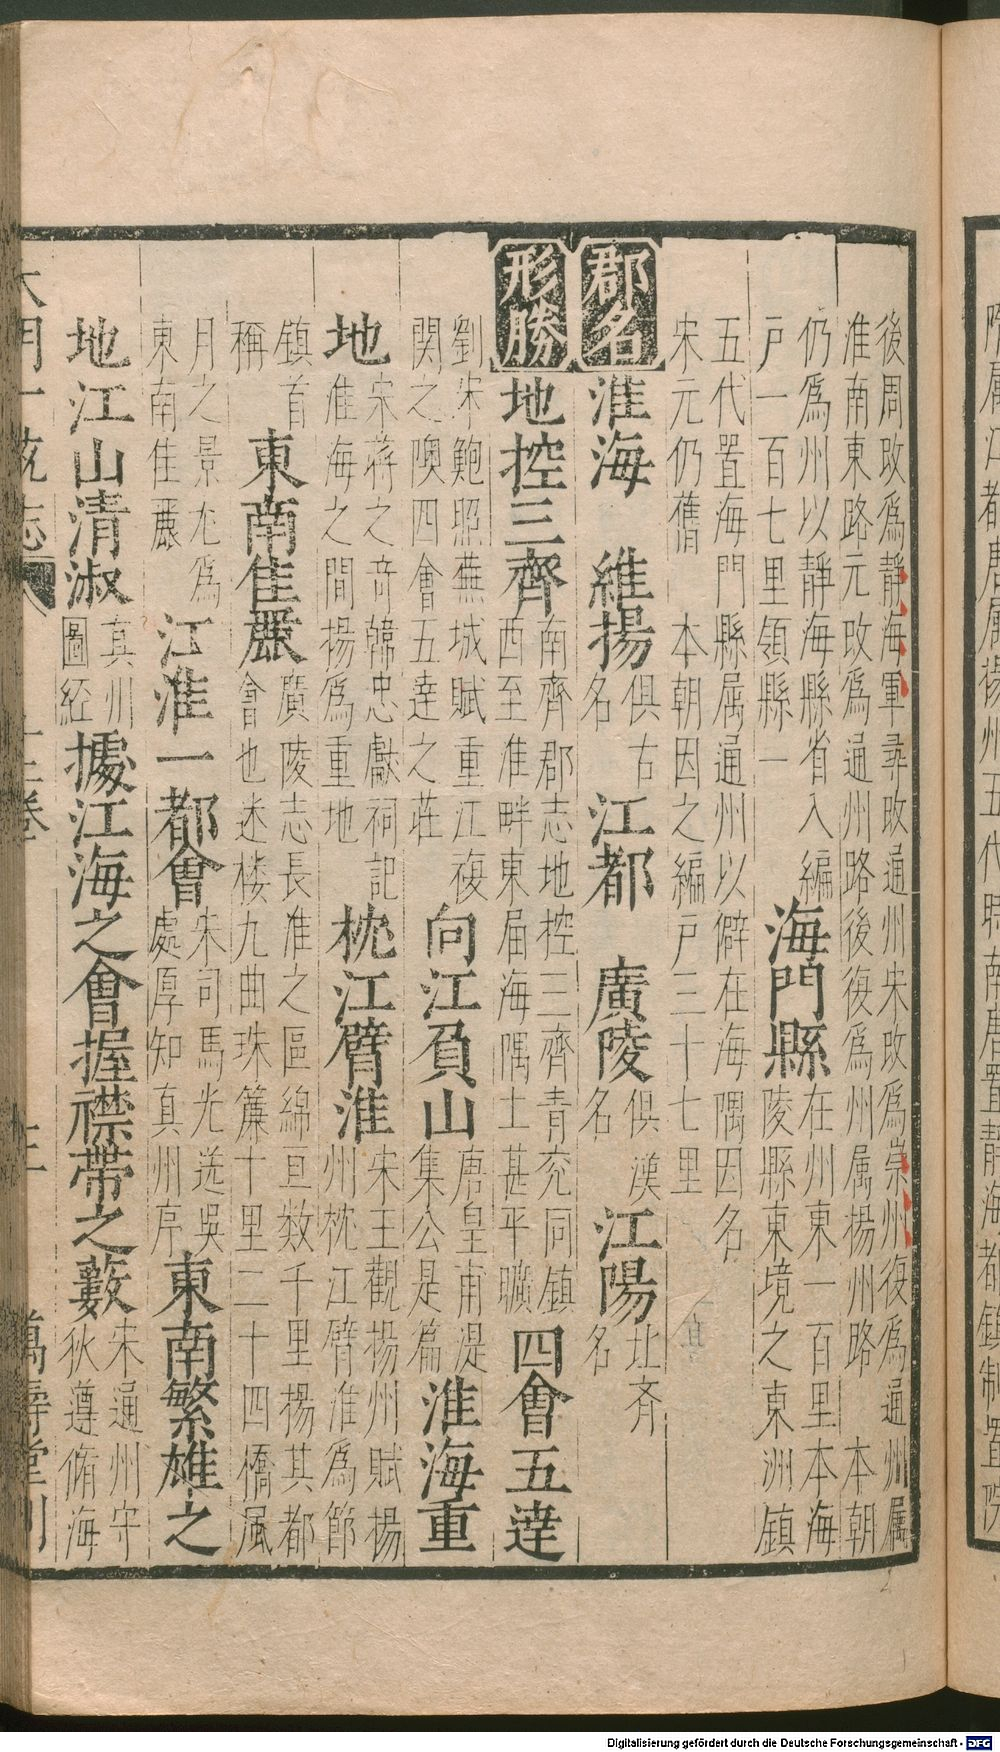 後周改爲靜海軍尋改通州宋改爲崇州復爲通州屬
淮南東路元改爲通州路後復爲州属揚州路　本朝
仍爲州以靜海縣省入編
戸一百七里領縣一
海門縣
在州東一百里本海
陵縣東境之東洲鎮
五代置海門縣属通州以僻在海隅因名
宋元仍舊　本朝因之編戸三十七里
郡名
淮海　維揚
俱古
名
江都　廣陵
俱漢
名
江陽
北齊
名
形勝
地控三齊
南齊郡志地控三齊青兗同鎮
西至淮畔東届海隅土甚平曠
四會五達
劉宋鮑照蕪城賦重江複
関之隩四會五達之莊
向江負山
唐皇甫湜
集公是篇
淮海重
地
宋蔣之竒韓忠獻祠記
淮海之間揚爲重地
枕江臂淮
宋王觀揚州賦揚
州枕江臂淮爲節
鎮首
稱
東南佳麗
廣陵志長淮之區綿亘数千里揚其都
會也迷楼九曲珠簾十里二十四橋風
月之景尤爲
東南佳麗
江淮一都會
宋司馬光送吳
處厚知真州序
東南繁雄之
地江山清淑
真州
圖経
據江海之會握襟帶之藪
宋通州守
狄遵脩海
大明一統志
十二卷
萬壽堂刋
Digitalisierung gefördert durch die Deutsche Forschungsgemeinschaft - DFG